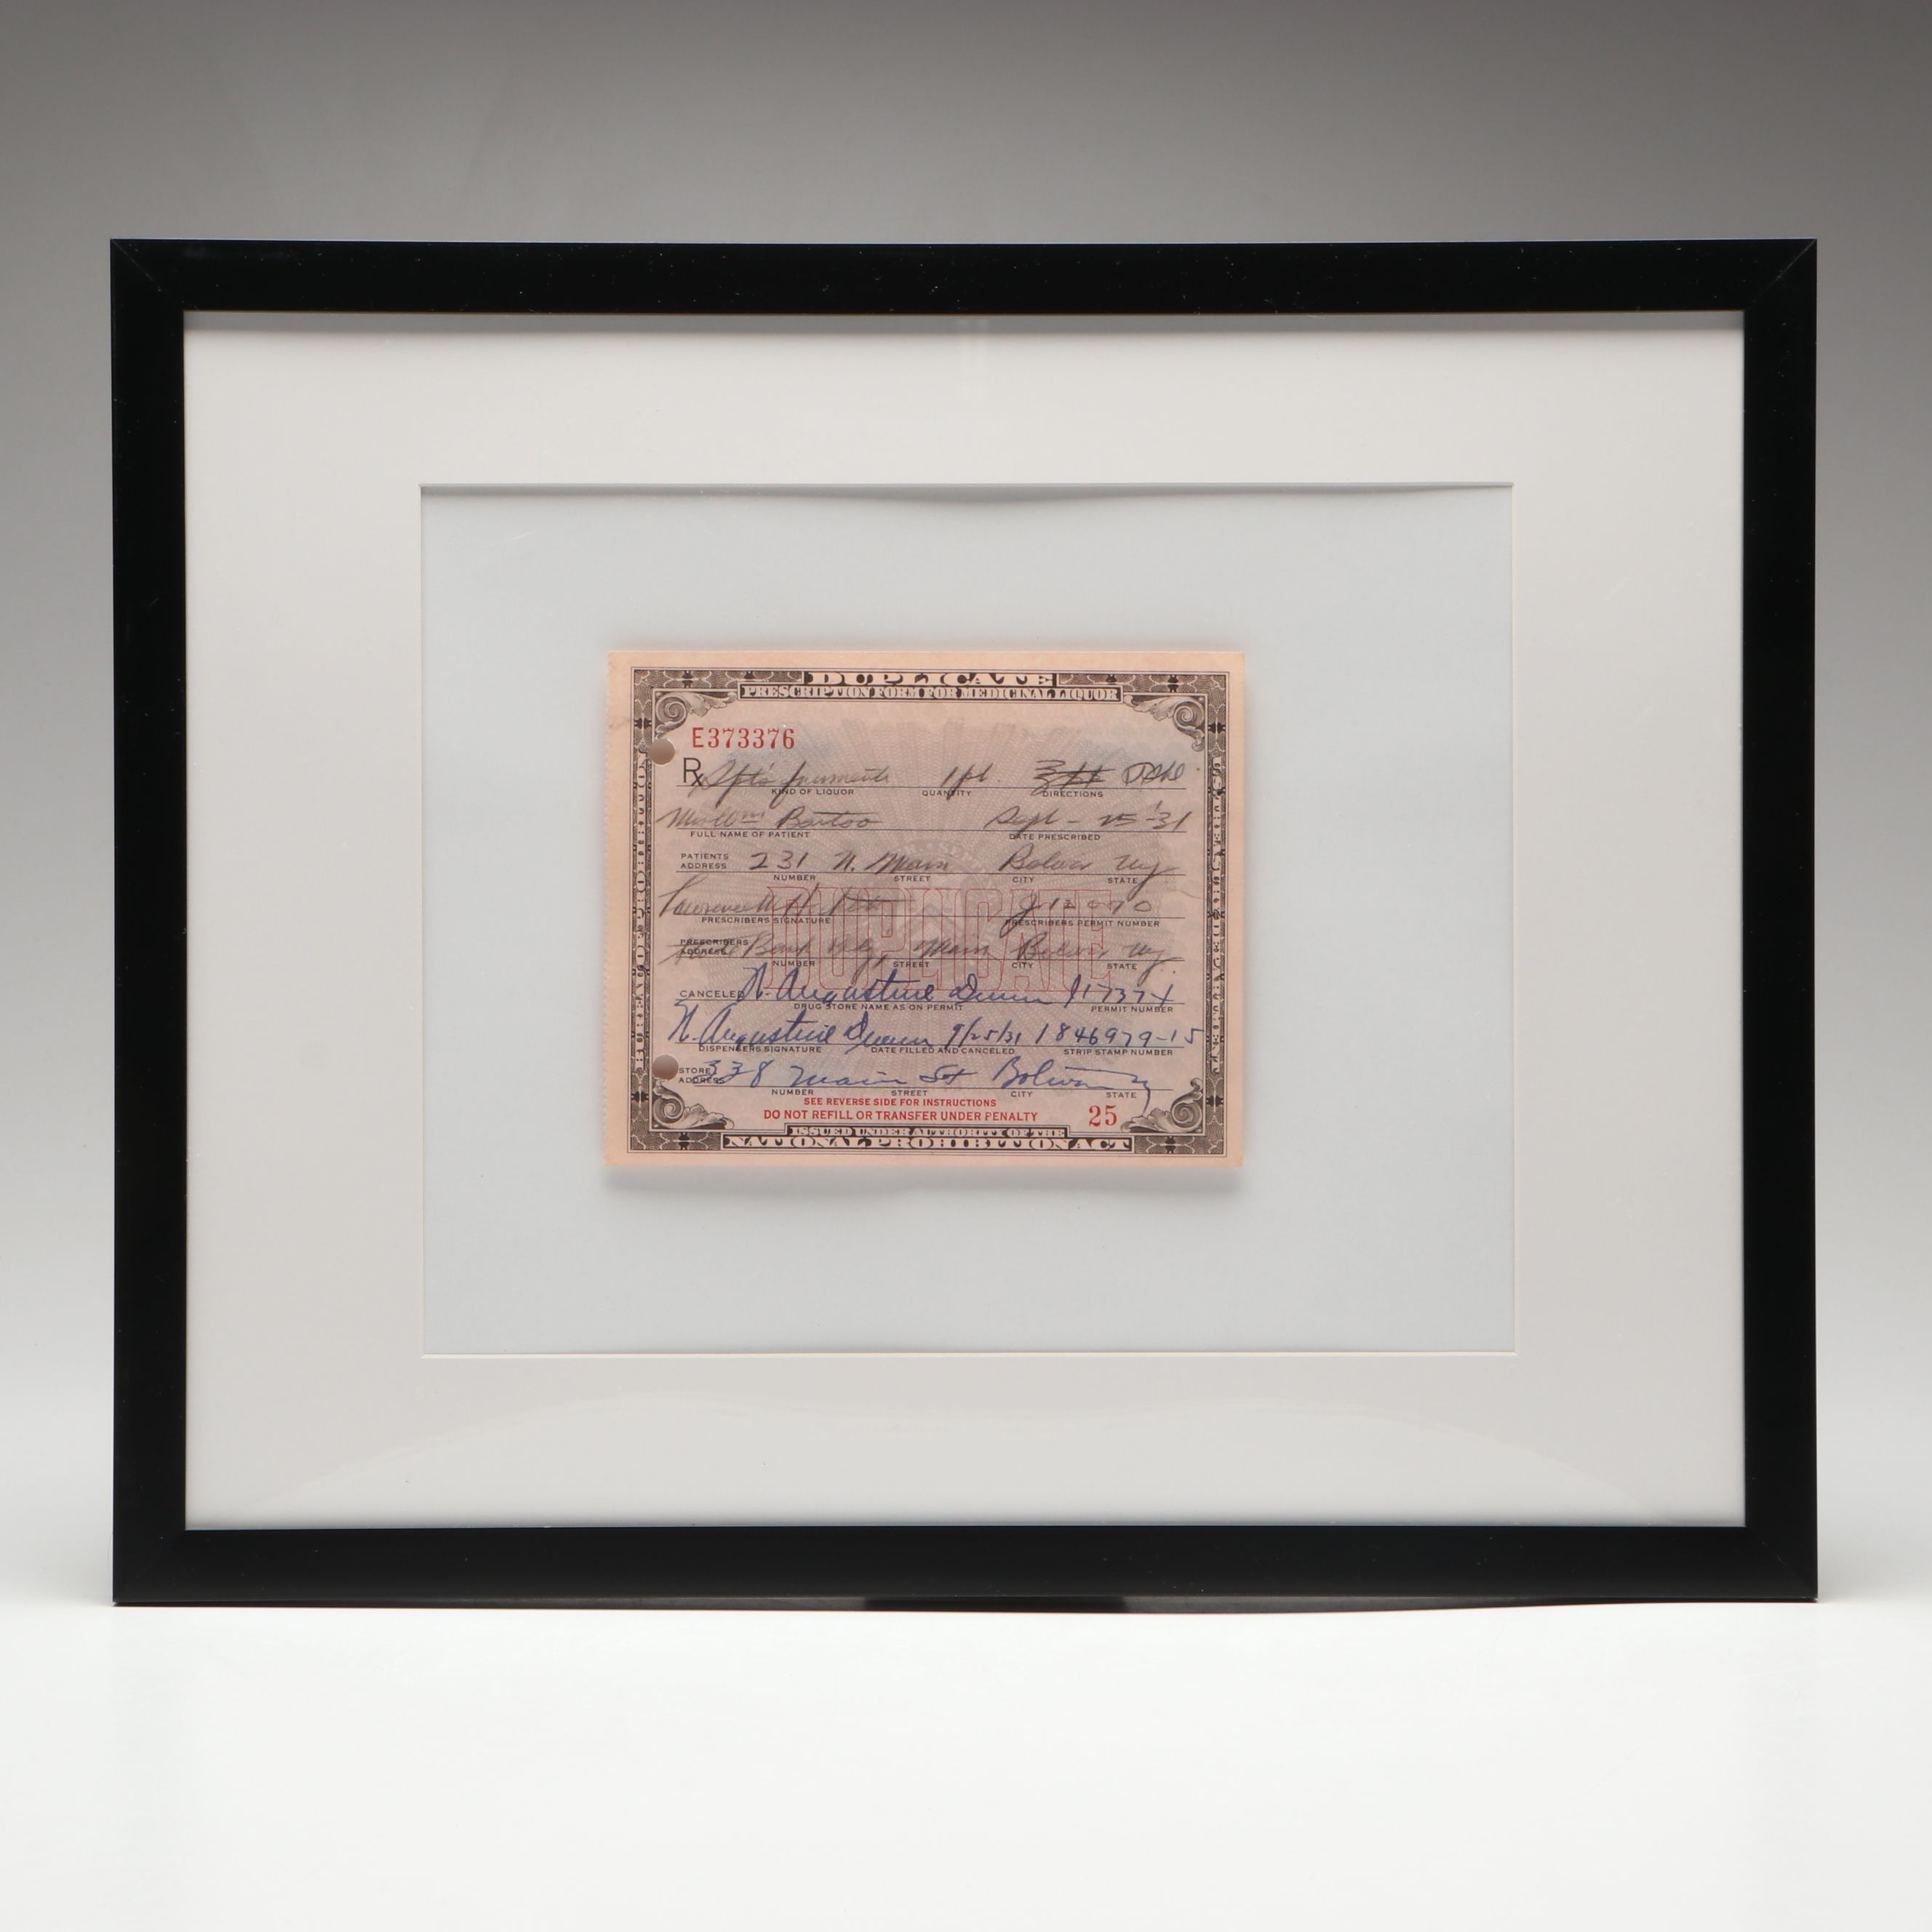 DUPLICATE
PRESCRIPTION FORM FOR MEDICINAL LIQUOR
E373376
Rx Spts frumenti 1 pt.
KIND OF LIQUOR QUANTITY DIRECTIONS
Bartoo Sept - 25 - '31
FULL NAME OF PATIENT DATE PRESCRIBED
PATIENTS ADDRESS 231 N. Main Bolivar Ny
NUMBER STREET CITY STATE
PRESCRIBERS SIGNATURE PRESCRIBERS PERMIT NUMBER
PRESCRIBERS ADDRESS Bank Bldg, Main Bolivar Ny
NUMBER STREET CITY STATE
DUPLICATE
CANCELED N. Augustine Dunn
DRUG STORE NAME AS ON PERMIT PERMIT NUMBER
N. Augustine Dunn 9/25/31 1846979-15
DISPENSERS SIGNATURE DATE FILLED AND CANCELED STRIP STAMP NUMBER
STORE ADDRESS 338 Main St Bolivar Ny
NUMBER STREET CITY STATE
SEE REVERSE SIDE FOR INSTRUCTIONS
DO NOT REFILL OR TRANSFER UNDER PENALTY 25
ISSUED UNDER AUTHORITY OF THE
NATIONAL PROHIBITION ACT